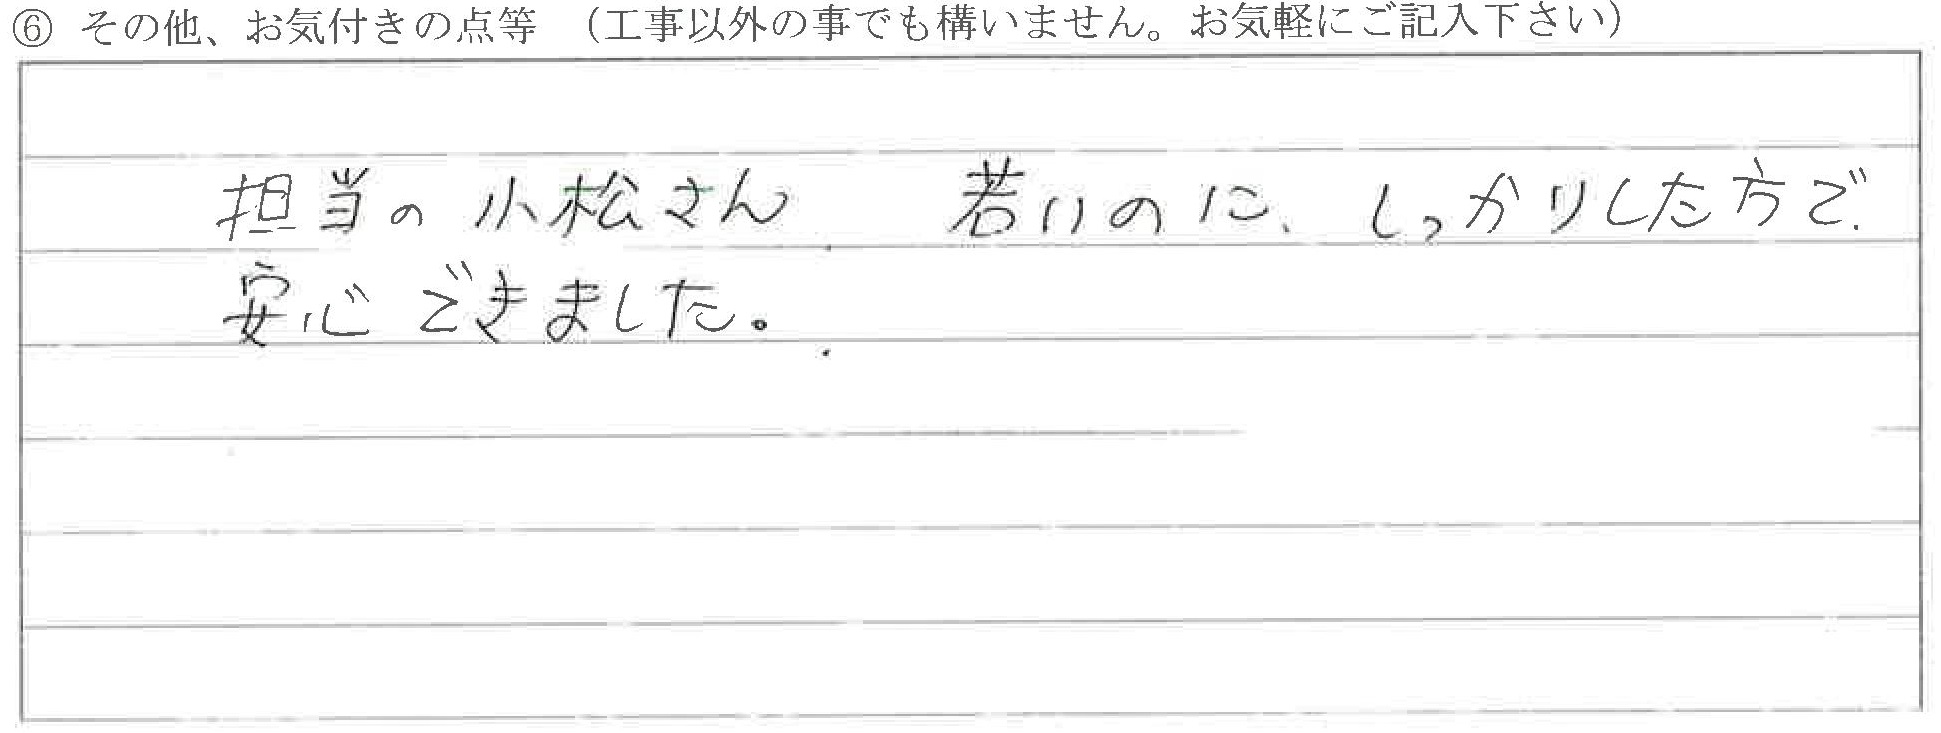 ⑥ その他、お気付きの点等 （工事以外の事でも構いません。お気軽にご記入下さい）
担当の小松さん 若いのに、しっかりした方で
安心できました。